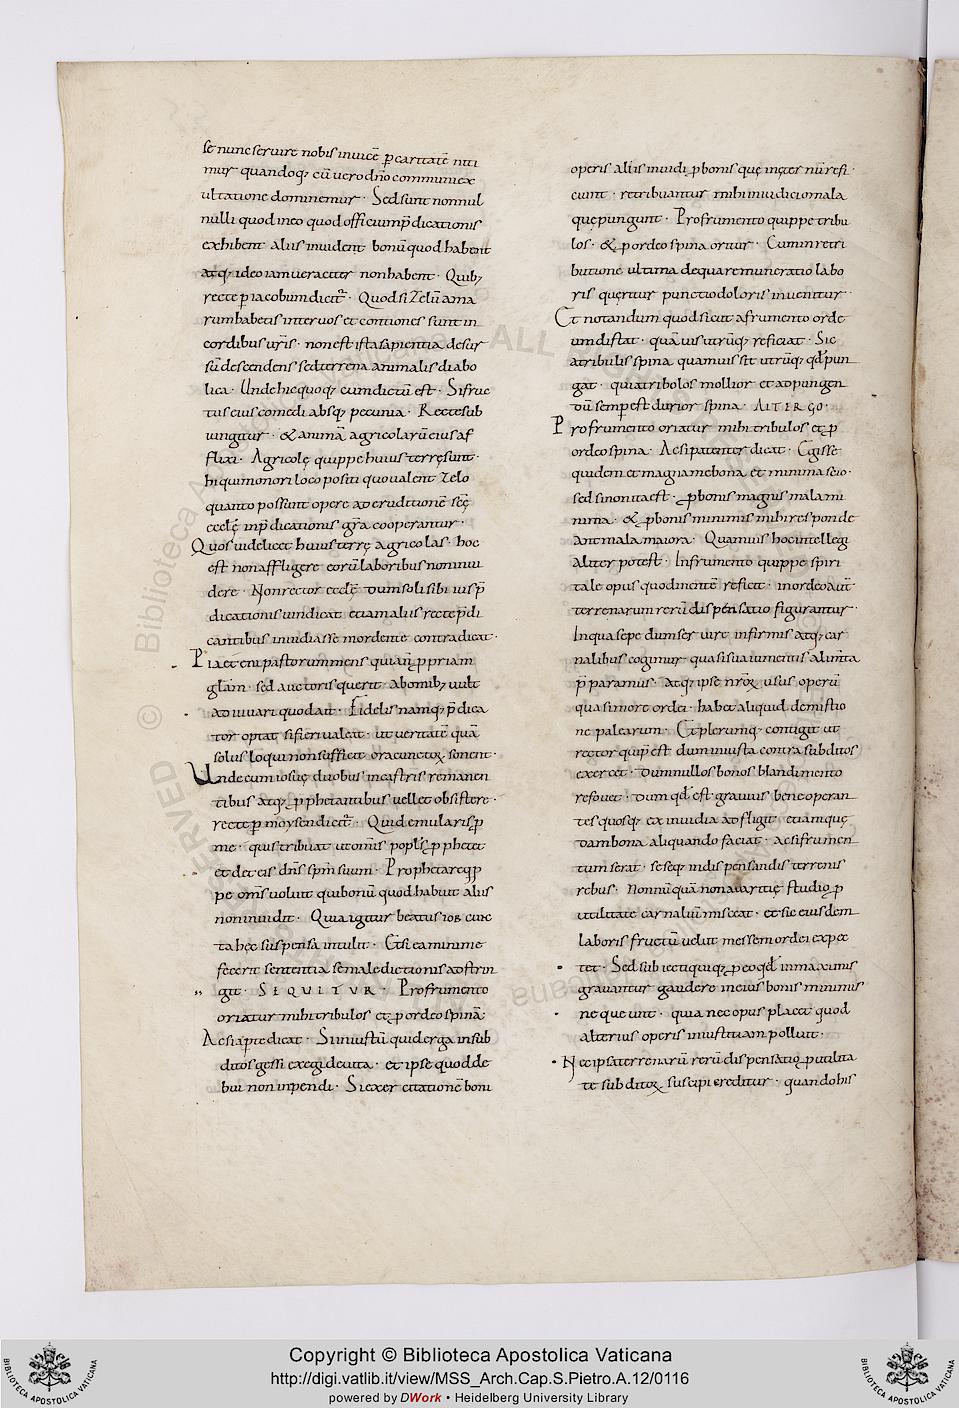 se nunc seruire nobis inuicē ꝑ caritatē niti
mur quandoq; cū uero dn̄o communi ex
ultatione dominemur · Sed sunt nonnul
nulli quod in eo quod officium p̄dicationis
exhibent aliis inuident · bonū quod habent
atq; ideo iam ueraciter non habent · Quib;
recte ꝑ iacobum dicit᷑ · Quod si zelū ama
rum habetis inter uos et contiones sunt in
cordibus ur̄is · non est ista sapientia desur
sū descendens sed terrena animalis diabo
lica · Unde hic quoq; cum dictū est · Si fruc
tus eius comedi absq; pecunia · Recte sub
iungitur · & animā agricolarū eius af
flixi · Agricolę quippe huius terrę sunt ·
hi qui minori loco positi quo ualent zelo
quanto possunt opere ad eruditionē scę̄
eccłę in p̄dicationis gr̄a cooperantur ·
Quos uidelicet huius terrę agricolas · hoc
est non affligere eorū laboribus non inui
dere · Non rector eccłę dum soli sibi ius p̄
dicationis uindicat etiam aliis recte p̄di
cantibus inuidia se mordente contradicat ·
Pia et eni pastorum mens quia n̄ ꝓpriam
głam · sed auctoris querit · ab omib; uult
adiuuari quod ait · Fidelis namq; p̄dica
tor optat si fieri ualeat · ut ueritatē quā
solus loqui non sufficit ora cunctoꝝ sonent ·
Unde cum iosuę duobus in castris remanen
tibus atq; ꝓphetantibus uellet obsistere ·
recte ꝑ moysen dicit᷑ · Quid emularis ꝓ
me · quis tribuat ut omīs popłs ꝓphetet
et det eis dn̄s spm̄ suum · Prophetare qp
pe om̄s uoluit qui bonū quod habuit aliis
non inuidit · Qua igitur beatus iob cunc
ta hęc suspensa intulit · Et si ea minime
fecerit sententia se maledictionis adstrin
git · SEQUITUR · Pro frumento
oriatur mihi tribulos et ꝓ ordeo spina;
Ac si aꝑte dicat · Si iniustū quid erga in sub
ditos gessi exegi debita · et ipse quod de
bui non inpendi · Si exercitationē boni
operis aliis inuidi ꝓ bonis quę in ęternū refi
ciunt · retribuantur mihi in iudicio mala
quę pungunt · Pro frumento quippe tribu
los · & ꝓ ordeo spina oritur · Cum in retri
butione ultima de qua remuneratio labo
ris quęritur punctio doloris inuenitur ·
Et notandum quod sicut a frumento orde
um distat · quāuis utrūq; reficiat · Sic
a tribulis spina quamuis sit utrūq; qđ pun
gat · quia tribolos mollior et ad pungen
dū semꝑ est durior spina · ALITER GO ·
Pro frumento oriatur mihi tribulos et ꝓ
ordeo spina · Ac si patenter dicat · Egisse
quidem et magia me bona et minima scio ·
sed si non ita est · ꝓ bonis magnis mala mi
nima · & ꝓ bonis minimis mihi responde
ant mala maiora · Quamuis hoc intellegi
aliter potest · In frumento quippe spiri
tale opus quod mentē reficit · in ordeo aut̄
terrenarum rerū dispensatio figurantur ·
In qua sepe dum seruire infirmis atq; car
nalibus cogimur · quasi sua iumentis alimta
p̄paramus · atq; ipse nr̄oꝝ usus operū
quasi more ordei · habet aliquid de mistio
ne palearum · Et plerumq; contigit ut
rector quip̄est dum iniusta contra subditos
exercet · dum nullos bonos blandimento
refouet · dum qđ est grauius bene operan
tes quosq; ex inuidia adfligit · etiam quę
dam bona aliquando faciat · ac si frumen
tum serat · seseq; in dispensandis terrenis
rebus · Nonnūquā non auaritię studio ꝓ
utilitate carnaliū misceat · et sic eiusdem
laboris fructū uelut messem ordei expec
tet · Sed subiecti quiq; ꝑ eo qđ in maximis
grauantur gaudere in eius bonis minimis
nequeunt · quia nec opus placet quod
alterius operis iniustitiam polluit ·
Nec ipsa terrenarū rerū dispensatio ꝓ utilita
te subditoꝝ suscipi creditur · quando his
Copyright © Biblioteca Apostolica Vaticana
http://digi.vatlib.it/view/MSS_Arch.Cap.S.Pietro.A.12/0116
powered by DWork • Heidelberg University Library